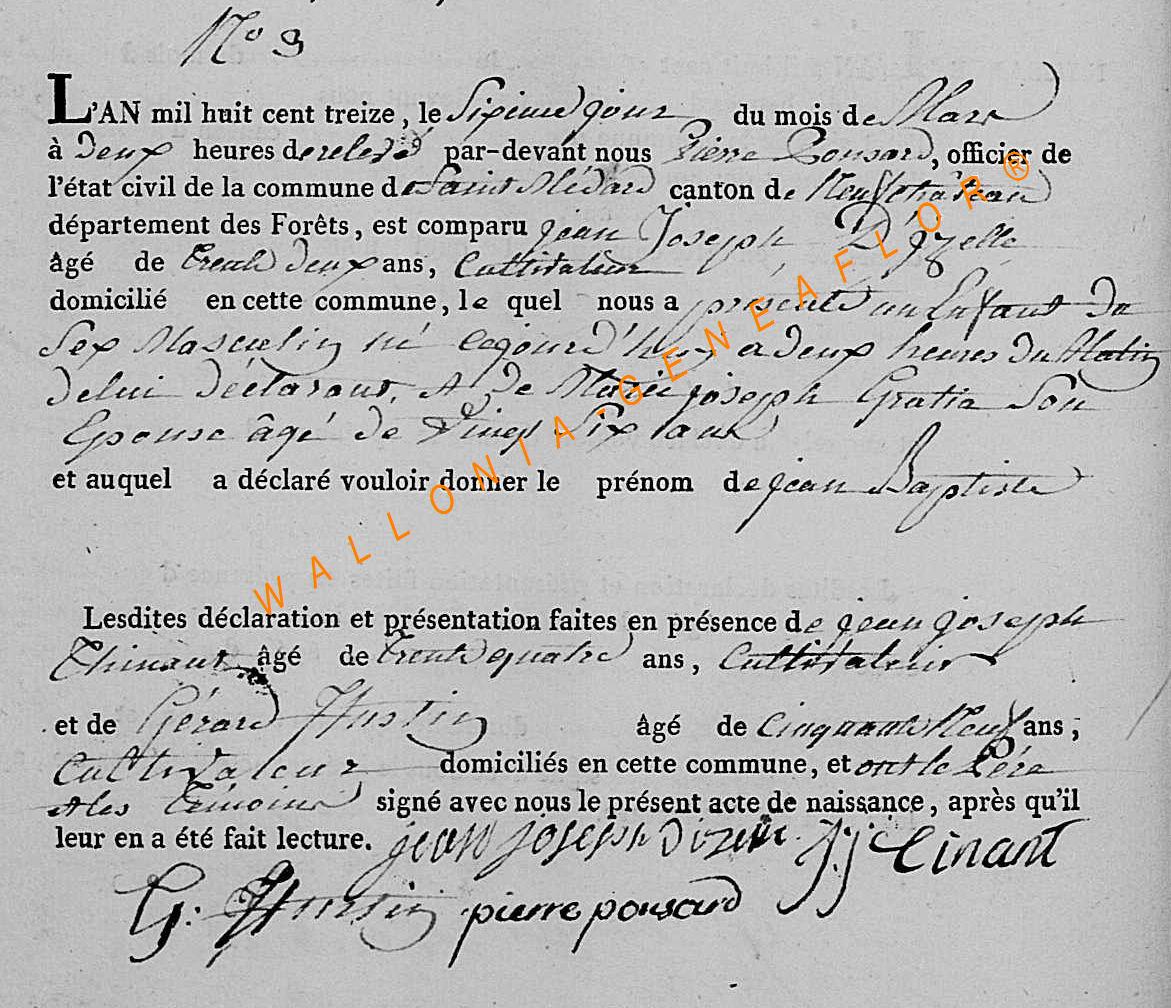 No 9
L'AN mil huit cent treize, le Sixieme jour du mois de Mars
à Deux heures de relevé par-devant nous Pierre Ponsard, officier de
l'état civil de la commune de Saint Médard canton de Neufchateau
département des Forêts, est comparu jean Joseph Dizelle
âgé de trente Deux ans, Cultivateur
domicilié en cette commune, le quel nous a présenté un Enfant Du
Sex Masculin né cejourd'huy a deux heures Du Matin
de lui déclarant, et De Marie joseph Gratia Son
Epouse âgé de Vingt Six ans
et auquel a déclaré vouloir donner le prénom de jean Baptiste
Lesdites déclaration et présentation faites en présence de jean joseph
Thinant âgé de trente quatre ans, Cultivateur
et de Gérard Hustin âgé de Cinquante Neuf ans,
Cultivateur domiciliés en cette commune, et ont le Pére
et les témoins signé avec nous le présent acte de naissance, après qu'il
leur en a été fait lecture. jean joseph Dizelle J j tinant
G: Hustin pierre ponsard
WALLONIA-GENEAFLOR®